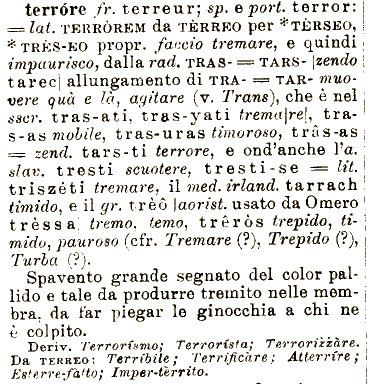 terróre fr. terreur; sp. e port. terror:
= lat. TERRÒREM da TÈRREO per *TÈRSEO,
*TRÈS-EO propr. faccio tremare, e quindi
impaurisco, dalla rad. TRAS- = TARS- |zendo
tarec| allungamento di TRA- = TAR- muo-
vere quà e là, agitare (v. Trans), che è nel
sscr. tras-ati, tras-yati trema|re|, tra-
s-as mobile, tras-uras timoroso, trâs-as
= zend. tars-ti terrore, e ond'anche l'a.
slav. tresti scuotere, tresti-se = lit.
triszéti tremare, il med. irland. tarrach
timido, e il gr. trèô |aorist. usato da Omero
trèssa| tremo, temo, três trepido, ti-
mido, pauroso (cfr. Tremare (?), Trepido (?),
Turba (?).
Spavento grande segnato del color pal-
lido e tale da produrre tremito nelle mem-
bra, da far piegar le ginocchia a chi ne
è colpito.
Deriv. Terrorismo; Terrorista; Terrorizzàre.
Da TERREO: Terribile; Terrificàre; Atterrire;
Esterre-fatto; Imper-tèrrito.